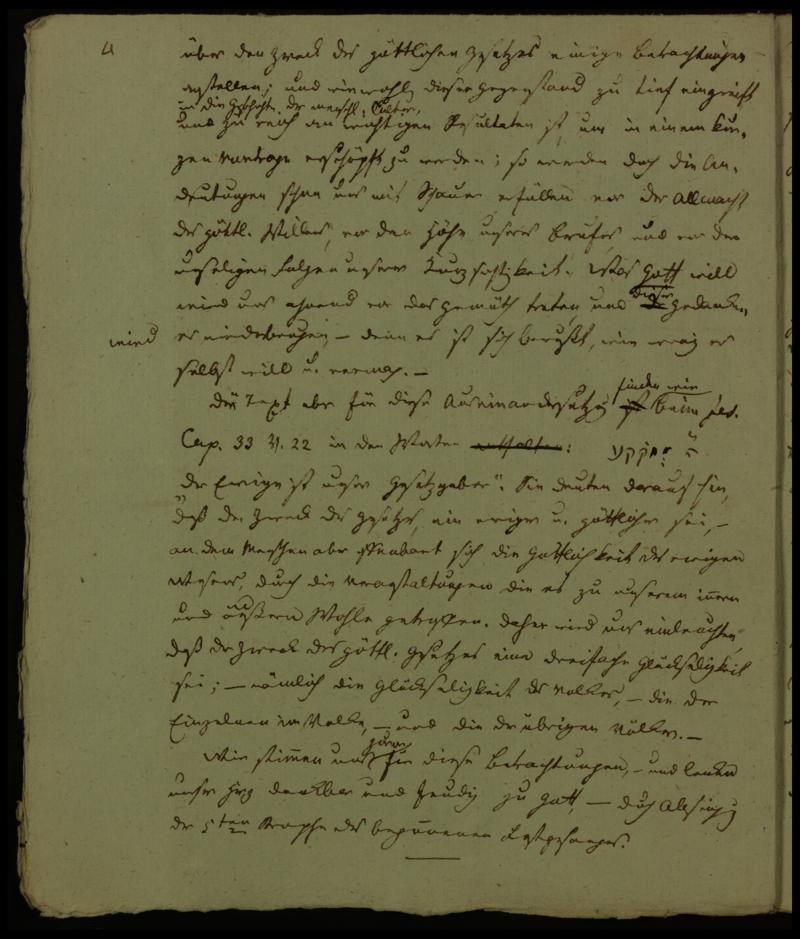 4
über den Zweck des göttlichen Gesetzes einige Betrachtungen
anstellen; und wiewohl dieser Gegenstand zu tief eingreift
in die Geschichte der menschl. Cultur,
und zu reich an wichtigen Resultaten ist, um in einem kur-
zen Vortrage erschöpft zu werden; so werden doch die An-
deutungen schon uns mit Schauer erfüllen vor der Allmacht
des göttl. Willens, vor der Höhe unseres Berufes und vor den
unseligen Folgen unserer Kurzsichtigkeit. Was Gott will
wird uns ahnend vor das Gemüth treten, und dieser Gedanke
wird
es niederbeugen, — denn es ist sich bewußt, wie wenig es
selbst will u. vermag. —
Den Text aber für diese Auseinandersetzg finden wir beim Jes.
Cap. 33 V. 22 in den Worten enthalten:
der Ewige ist unser Gesetzgeber". Sie deuten darauf hin,
daß der Zweck des Gesetzes, ein ewiger u. göttlicher sei, —
an dem Menschen aber offenbart sich die Göttlichkeit des ewigen
Wesens, durch die Veranstaltungen die es zu unserem innern
und äußern Wohle getroffen. Daher wird uns einleuchten,
daß der Zweck des göttl. Gesetzes eine dreifache Glückseligkeit
sei; — nämlich die Glückseligkeit des Volkes, — die der
Einzelnen im Volke, — und die der übrigen Völker. —
Wir stimmen uns für diese Betrachtungen, — und lenken
unser Herz dankbar und freudig zu Gott, — durch Absingg
der 5ten Strophe des begonnenen Festgesanges.